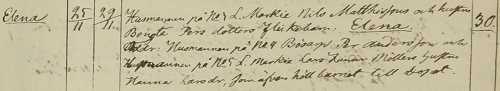 Elena 25/11 29/11 Husmannen på № 2 L. Markie Nils Matthissons och hustru 30.
Bengta Pers dotters flickebarn. Elena.
Husmannen på № 4 Bosarp Per Andersson och
på № 5 L. Markie Lars hustru
Hanna Larsdr, som äfven höll barnet till Dopet.